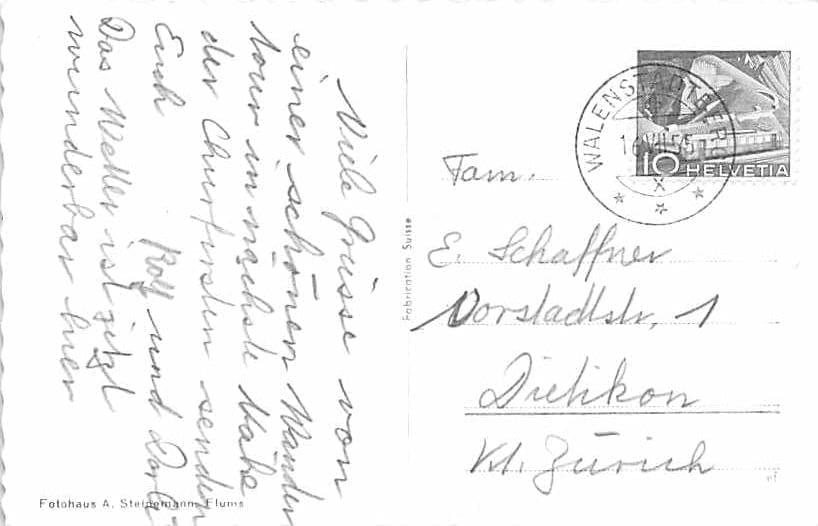 Viele Grüsse von
einer schönen Wander
tour in nächste Nähe
der Churfirsten senden
Euch
Rolf und
Das Wetter ist jetzt
wunderbar hier
Fotohaus A. Steinemann, Flums
Fabrication Suisse
WALENSTADTBERG
16.VIII.55
X
10 HELVETIA
Fam.
E. Schaffner
Vorstadtstr. 1
Dietikon
Kt. Zürich